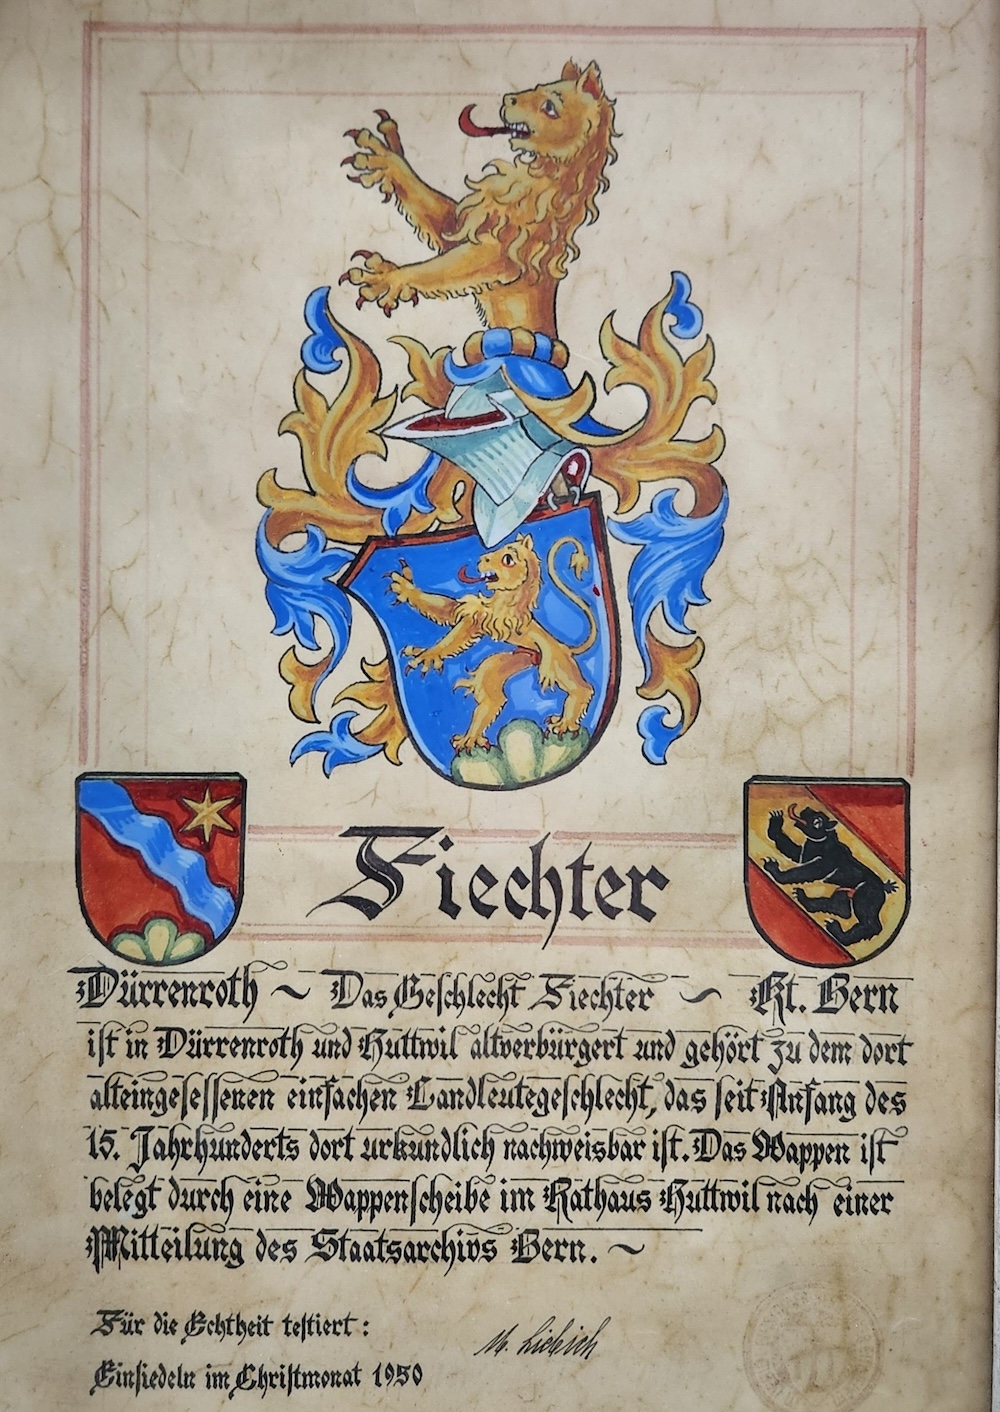 Fiechter
Dürrenroth ~ Das Geschlecht Fiechter ~ Kt. Bern
ist in Dürrenroth und Huttwil altverbürgert und gehört zu dem dort
alteingesessenen einfachen Landleutegeschlecht, das seit Anfang des
15. Jahrhunderts dort urkundlich nachweisbar ist. Das Wappen ist
belegt durch eine Wappenscheibe im Rathaus Huttwil nach einer
Mitteilung des Staatsarchivs Bern. ~
Für die Echtheit testiert:
Einsiedeln im Christmonat 1950